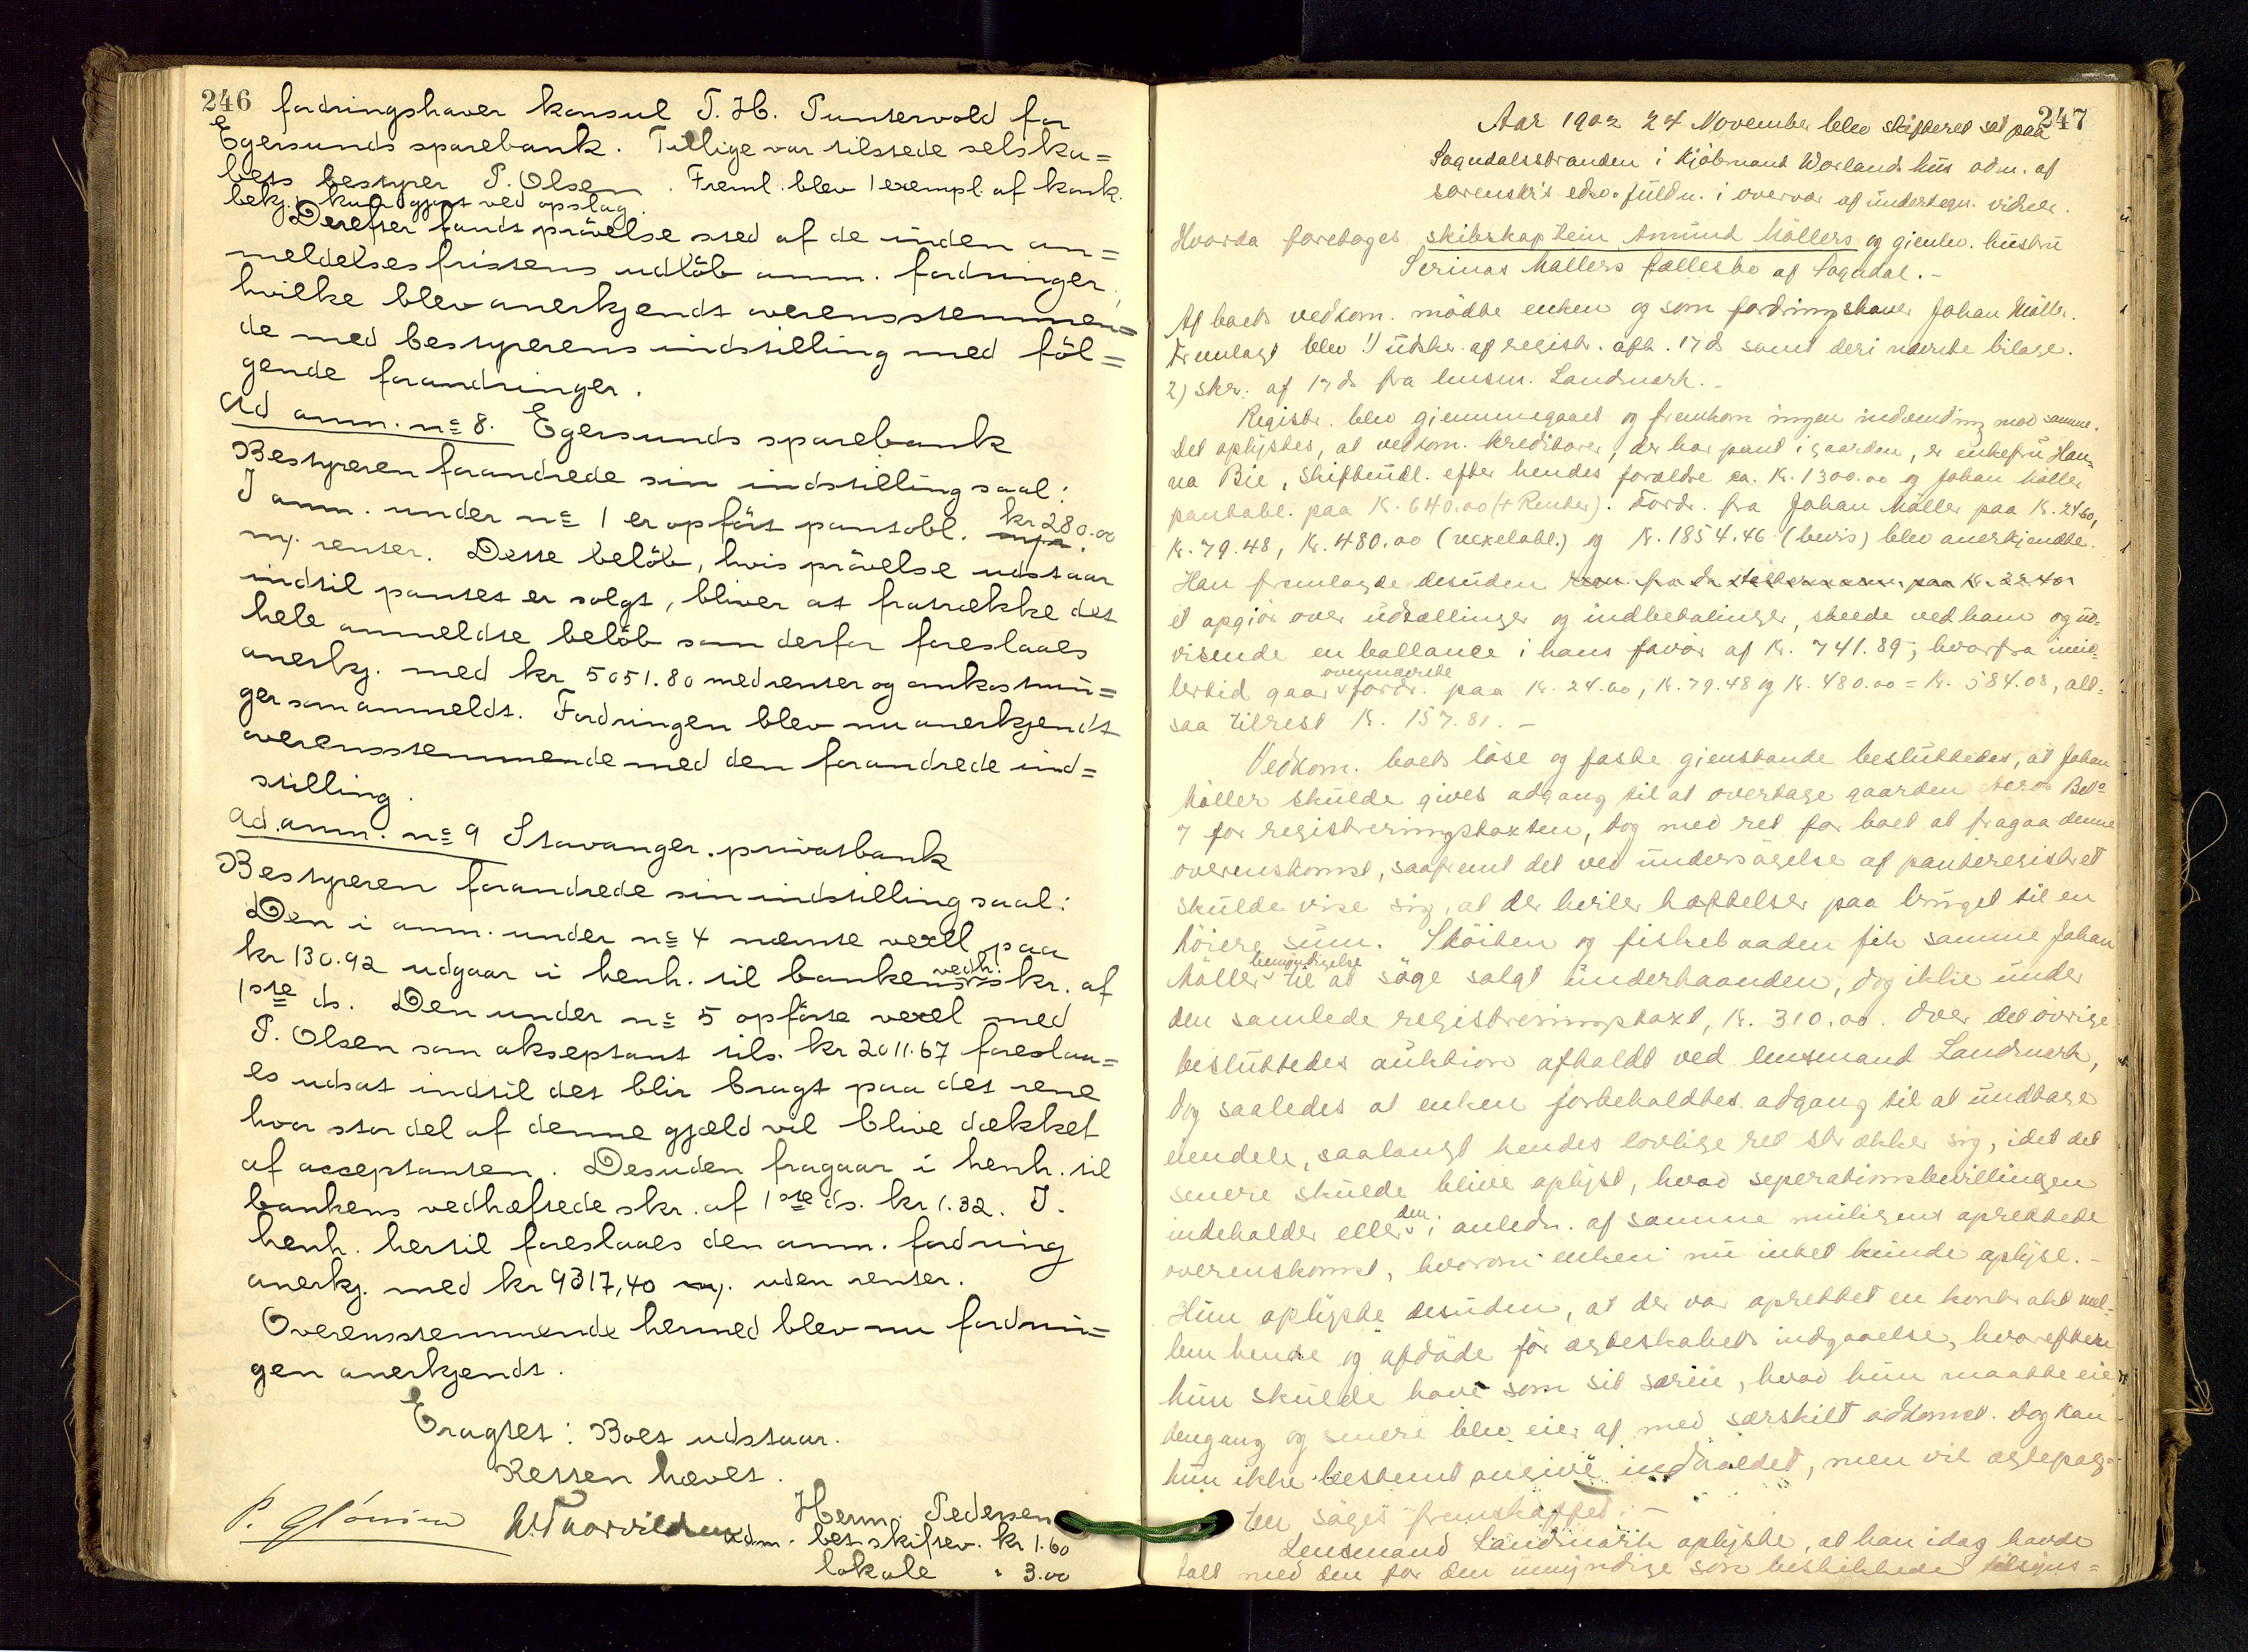 246
fordringshaver konsul T. H. Puntervold for
Egersunds sparebank. Tillige var tilstede selska=
bets bestyrer P. Olsen. Freml. blev 1 exempl. af konk.
bekj. kundgjort ved opslag.
Derefter fandt prövelse sted af de inden an=
meldelsesfristens udlöb anm. fordringer,
hvilke blev anerkjendt overensstemmen=
de med bestyrerens indstilling med föl=
gende forandringer.
Ad anm. no 8. Egersunds sparebank
Bestyreren forandrede sin indstilling saal:
I anm. under no 1 er opfört pantobl. kr 280.00
m/. renter. Dette belöb, hvis prövelse udstaar
indtil pantet er solgt, bliver at fratrække det
hele anmeldte belöb som derfor foreslaaes
anerkj. med kr 5051.80 med renter og omkostnin=
ger som anmeldt. Fordringen blev nu anerkjendt
overensstemmende med den forandrede ind=
stilling.
Ad. anm. no 9 Stavanger privatbank
Bestyreren forandrede sin indstilling saal:
Den i anm. under no 4 nævnte vexel paa
kr 130.92 udgaar i henh. til bankens vedh. skr. af
1ste ds. Den under no 5 opförte vexel med
P. Olsen som akseptant tils. kr 2011.67 foreslaa=
es udsat indtil det blir bragt paa det rene
hvor stor del af denne gjæld vil blive dækket
af acceptanten. Desuden fragaar i henh. til
bankens vedhæftede skr. af 1ste ds. kr 1.32. I
henh. hertil foreslaaes den anm. fordring
anerkj. med kr 9317,40 m/. uden renter.
Overensstemmende hermed blev nu fordrin=
gen anerkjendt.
Eragtet: Boet udstaar.
Retten hævet.
Herm. Pedersen
Adm. bet. skiftev. kr 1.60
lokale " 3.00
247
Aar 1902 24 November blev skifteret sat paa
Sogndalsstranden i Kjöbmand Worlands hus adm. af
sorenskr's edsv. fuldm. i overvær af undertegn. vidner.
Hvorda foretoges skibskaptein Amund Möllers og gjenlev. hustru
Serinas Möllers fællesbo af Sogndal. -
Af boets vedkom. mödte enken og som fordringshaver Johan Möller.
Fremlagt blev 1) udskr. af registr. afh. 17 ds samt deri nævnte bilage.
2) skr. af 17 ds fra lensm. Landmark. -
Registr. blev gjennemgaaet og fremkom ingen indvending mod samme.
Det oplystes, at vedkom. kreditorer, der har pant i gaarden, er enkefru Han-
na Bie, skifteudl. efter hendes forældre ca. Kr. 1300.00 og Johan Möller
pantobl. paa Kr. 640.00 (+ Renter). Fordr. fra Johan Möller paa Kr. 24.60,
Kr. 79.48, Kr. 480.00 (vexelobl.) og Kr. 1854.46 (bevis) blev anerkjendte.
Han fremlagde desuden
et opgjör over udtællinger og indbetalinger, skeede ved ham og ud-
visende en ballance i hans favör af Kr. 741.89; hvorfra imid-
lertid gaar ovennævnte fordr. paa Kr. 24.60, Kr. 79.48 og Kr. 480.00 = Kr. 584.08, alt-
saa tilrest Kr. 157.81. -
Vedkom. boets löse og faste gjenstande besluttedes, at Johan
Möller skulde gives adgang til at overtage gaarden
7 for registreringstaxten, dog med ret for boet at fragaa denne
overenskomst, saafremt det ved undersögelse af panteregistret
skulde vise sig, at der hviler hæftelser paa bruget til en
höiere sum. Sköiten og fiskebaaden fik samme Johan
Möller bemyndigelse til at söge solgt underhaanden, dog ikke under
den samlede registreringstaxt, Kr. 310.00. Over det övrige
besluttedes auktion afholdt ved lensmand Landmark,
dog saaledes at enken forbeholdtes adgang til at undtage
eiendele, saalangt hendes lovlige ret strækker sig, idet det
senere skulde blive oplyst, hvad seperationsbevillingen
indeholder eller den i anledn. af samme muligens oprettede
overenskomst, hvorom enken nu intet kunde oplyse. -
Hun oplyste desuden, at der var oprettet en kontrakt mel-
lem hende og afdöde för ægteskabets indgaaelse, hvorefter
hun skulde have som sit særeie, hvad hun maatte eie
dengang og senere blev eier af med særskilt adkomst. Dog kan
hun ikke bestemt angive indholdet, men vil ægtepag-
ten söges fremskaffet. -
Lensmand Landmark oplyste, at han idag havde
talt med den for den umyndige sön beskikkede tilsyns=